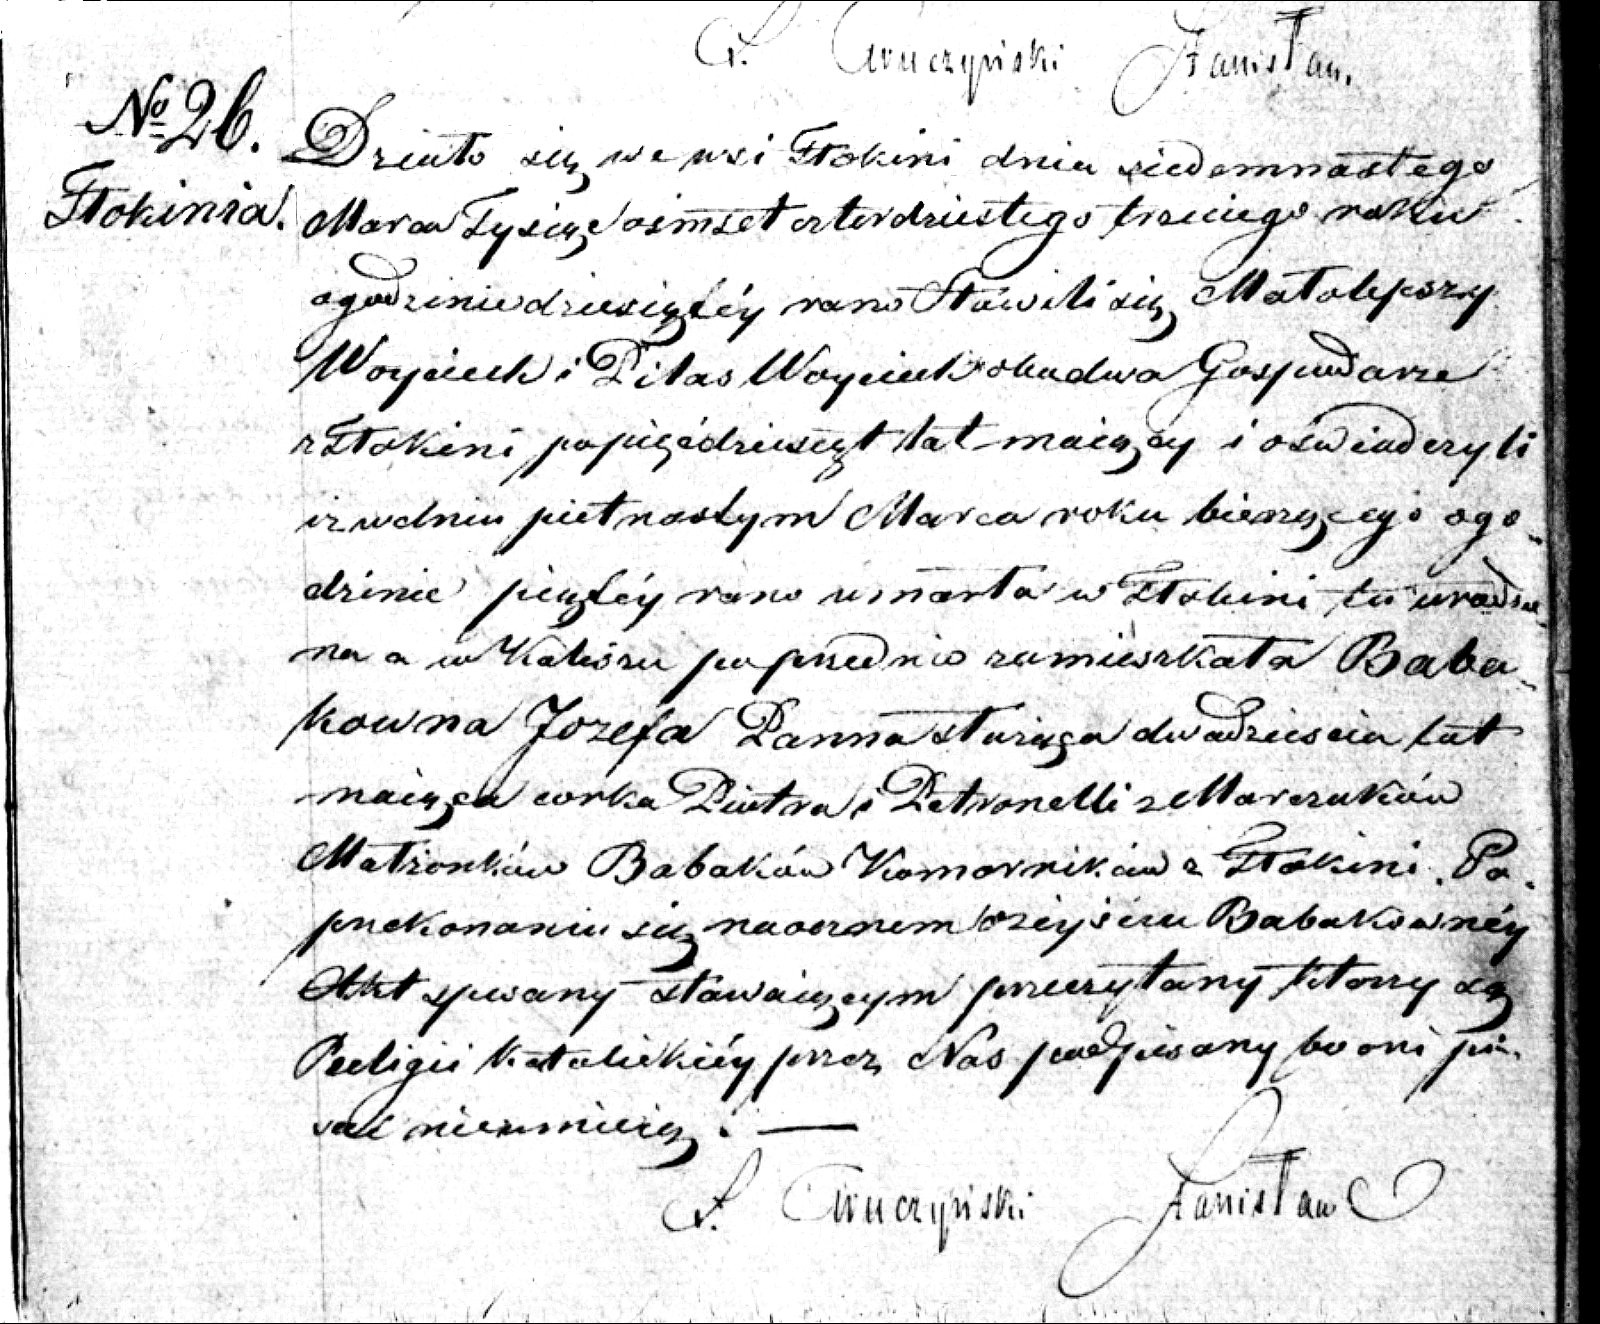 Stanisław.
No 26.
Tłokinia.
Działo się we wsi Tłokini dnia siedemnastego
Marca Tysiąc osmset czterdziestego trzeciego roku
o godzinie dziesiątéy rano Stawili się Małolepszy
Woyciech i Pilas Woyciech obudwa Gospodarze
z Tłokini po pięćdziesiąt lat maiący i oswiadczyli
iz w dniu pietnastym Marca roku bieżącego o go-
dzinie piątéy rano umarła w Tłokini tu urodzo-
na a w Kaliszu poprzednio zamieszkała Baba-
kowna Jozefa Panna służąca dwadziescia lat
maiąca corka Piotra i Petronelli z Marczaków
Małżonków Babaków Komorników z Tłokini. Po
przekonaniu się naocznem o zeyściu Babakownéy
Akt spisany stawaiącym przeczytany ktorzy są
Religii Katolickiéy przez Nas podpisany bo oni pi-
sać nieumieią. —
Stanisław